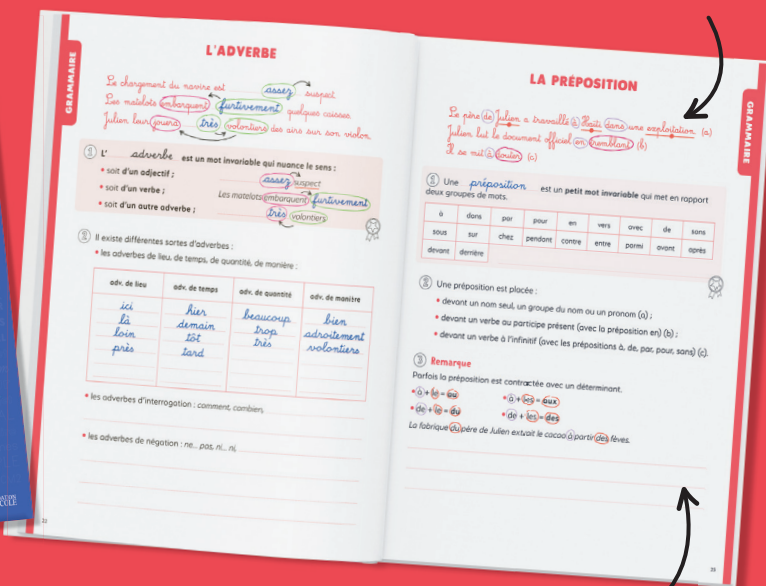 GRAMMAIRE
L'ADVERBE
Le chargement du navire est assez suspect.
Les matelots embarquent furtivement quelques caisses.
Julien leur jouera très volontiers des airs sur son violon.
1 L' adverbe est un mot invariable qui nuance le sens :
• soit d'un adjectif ; assez suspect
• soit d'un verbe ; Les matelots embarquent furtivement
• soit d'un autre adverbe ; très volontiers
2 Il existe différentes sortes d'adverbes :
• les adverbes de lieu, de temps, de quantité, de manière :
adv. de lieu adv. de temps adv. de quantité adv. de manière
ici hier beaucoup bien
là demain trop adroitement
loin tôt très volontiers
près tard
• les adverbes d'interrogation : comment, combien,
• les adverbes de négation : ne... pas, ni... ni,
32
LA PRÉPOSITION
GRAMMAIRE
Le père de Julien a travaillé à Haïti dans une exploitation. (a)
Julien lut le document officiel en tremblant. (b)
Il se mit à douter. (c)
1 Une préposition est un petit mot invariable qui met en rapport
deux groupes de mots.
à dans par pour en vers avec de sans
sous sur chez pendant contre entre parmi avant après
devant derrière
2 Une préposition est placée :
• devant un nom seul, un groupe du nom ou un pronom (a) ;
• devant un verbe au participe présent (avec la préposition en) (b) ;
• devant un verbe à l'infinitif (avec les prépositions à, de, par, pour, sans) (c).
3 Remarque
Parfois la préposition est contractée avec un déterminant.
• à + le = au • à + les = aux
• de + le = du • de + les = des
La fabrique du père de Julien extrait le cacao à partir des fèves.
33